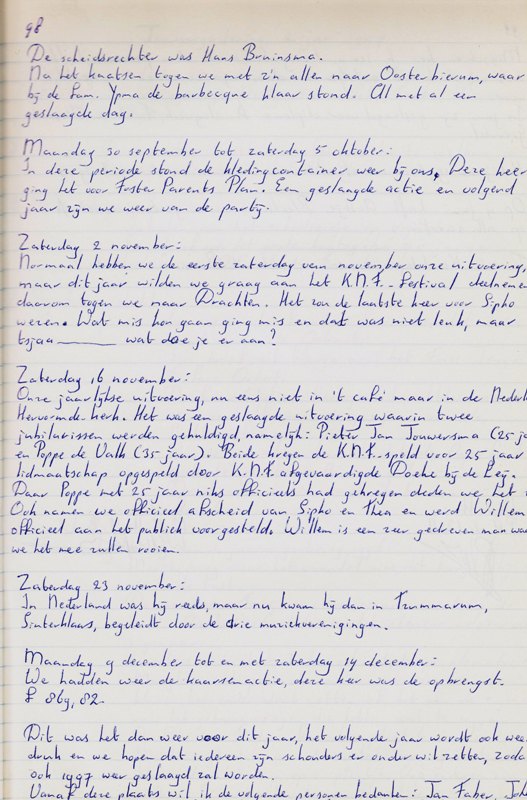 98
De scheidsrechter was Hans Bruinsma.
Na het kaatsen togen we met z'n allen naar Oosterbierum, waar
bij de fam. Ypma de barbecque klaar stond. Al met al een
geslaagde dag.
Maandag 30 september tot zaterdag 5 oktober:
In deze periode stond de kledingcontainer weer bij ons. Deze keer
ging het voor Foster Parents Plan. Een geslaagde actie en volgend
jaar zijn we weer van de partij.
Zaterdag 2 november:
Normaal hebben we de eerste zaterdag van november onze uitvoering,
maar dit jaar wilden we graag aan het K.N.F.-Festival deelnemen
daarom togen we naar Drachten. Het zou de laatste keer voor Sipho
wezen. Wat mis kon gaan ging mis en dat was niet leuk, maar
tsjaa ——— wat doe je er aan?
Zaterdag 16 november:
Onze jaarlijkse uitvoering, nu eens niet in 't café maar in de Nederl
Hervormde kerk. Het was een geslaagde uitvoering waarin twee
jubilarissen werden gehuldigd, namelijk: Pieter Jan Jouwersma (25 ja
en Poppe de Valk (35 jaar). Beide kregen de K.N.F.-speld voor 25 jaar
lidmaatschap opgespeld door K.N.F. afgevaardigde Doeke bij de Leij.
Daar Poppe met 25 jaar niks officieels had gekregen deden we het
Ook namen we officieel afscheid van Sipho en Thea en werd Willem
officieel aan het publiek voorgesteld. Willem is een zeer gedreven man waar
we het mee zullen rooien.
Zaterdag 23 november:
In Nederland was hij reeds, maar nu kwam hij dan in Tzummarum,
Sinterklaas, begeleidt door de drie muziekverenigingen.
Maandag 9 december tot en met zaterdag 14 december:
We hadden weer de kaarsenactie, deze keer was de opbrengst.
ƒ 869,82.
Dit was het dan weer voor dit jaar, het volgende jaar wordt ook wee
druk en we hopen dat iedereen zijn schouders er onder wil zetten, zoda
ook 1997 weer geslaagd zal worden.
Vanaf deze plaats wil ik de volgende personen bedanken: Jan Faber,